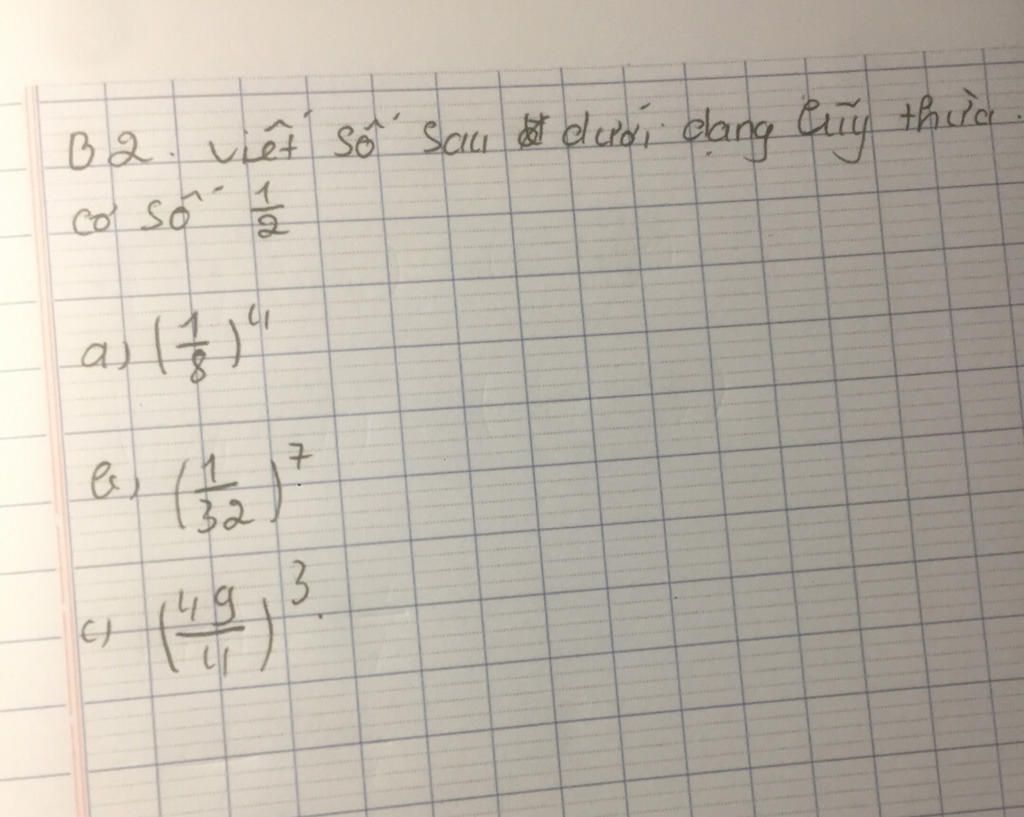 B2. viết số sau dưới dạng lũy thừa.
cơ số 1/2
a) (1/8)^4
b) (1/32)^7
c) (49/4)^3